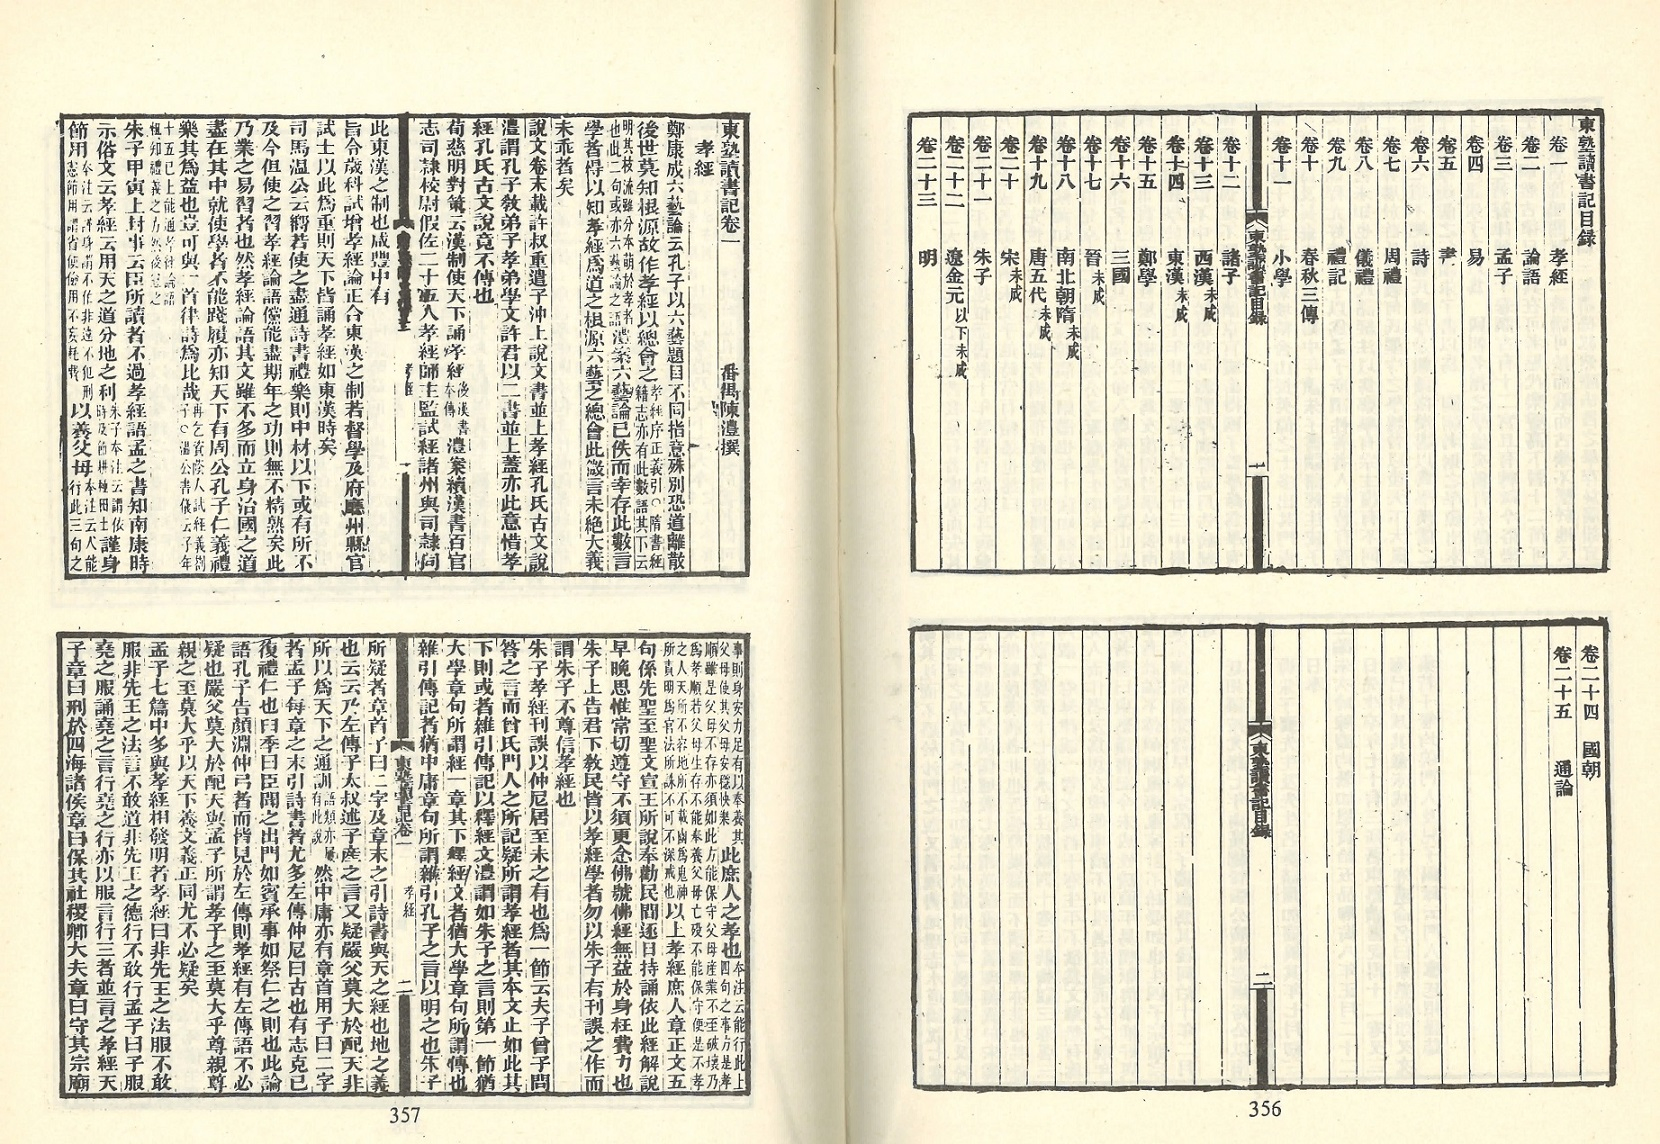 東塾讀書記目錄
卷一 孝經
卷二 論語
卷三 孟子
卷四 易
卷五 書
卷六 詩
卷七 周禮
卷八 儀禮
卷九 禮記
卷十 春秋三傳
卷十一 小學
東塾讀書記目錄 一
卷十二 諸子
卷十三 西漢未成
卷十四 東漢未成
卷十五 鄭學
卷十六 三國
卷十七 晉未成
卷十八 南北朝隋未成
卷十九 唐五代未成
卷二十 宋未成
卷二十一 朱子
卷二十二 遼金元以下未成
卷二十三 明
卷二十四 國朝
卷二十五 通論
東塾讀書記目錄 二
356
東塾讀書記卷一 番禺陳澧撰
孝經
鄭康成六藝論云孔子以六藝題目不同指意殊別恐道離散
後世莫知根源故作孝經以總會之孝經序正義引○隋書經籍志亦有此數語其下云
明其枝流雖分本萌於孝者也此二句或亦六藝論之語澧案六藝論已佚而幸存此數言
學者得以知孝經為道之根源六藝之總會此微言未絕大義
未乖者矣
說文卷末載許叔重遣子沖上說文書並上孝經孔氏古文說
澧謂孔子教弟子孝弟學文許君以二書並上蓋亦此意惜孝
經孔氏古文說竟不傳也
荀慈明對策云漢制使天下誦孝經後漢書本傳澧案續漢書百官
志司隸校尉假佐二十五人孝經師主監試經諸州與司隸同
孝經 一
此東漢之制也咸豐中有
旨令歲科試增孝經論正合東漢之制若督學及府廳州縣官
試士以此為重則天下皆誦孝經如東漢時矣
司馬溫公云嚮若使之盡通詩書禮樂則中材以下或有所不
及今但使之習孝經論語儻能盡期年之功則無不精熟矣此
乃業之易習者也然孝經論語其文雖不多而立身治國之道
盡在其中就使學者不能踐履亦知天下有周公孔子仁義禮
樂其為益也豈可與一首律詩為比哉再乞資蔭人試經義劄子○溫公書儀云子年
十五已上能通孝經論語粗知禮義之方然後冠之
朱子甲寅上封事云臣所讀者不過孝經語孟之書知南康時
示俗文云孝經云用天之道分地之利朱子本注云謂依時及節耕種田土謹身
節用本注云謹身謂不作非違不犯刑憲節用謂省使儉用不妄耗費以養父母本注云人能行此三句之
事則身安力足有以奉養其父母使其父母安穩快樂此庶人之孝也本注云能行此上四句之事方是孝
順雖是父母不存亦須如此方能保守父母產業不至破壞乃為孝順若父母生存不能奉養父母亡歿不能保守便是不孝
之人天所不容地所不載幽為鬼神所責明為官法所誅不可不深戒也以上孝經庶人章正文五
句係先聖至聖文宣王所說奉勸民間逐日持誦依此經解說
早晚思惟常切遵守不須更念佛號佛經無益於身枉費力也
朱子上告君下教民皆以孝經學者勿以朱子有刊誤之作而
謂朱子不尊信孝經也
朱子孝經刊誤以仲尼居至未之有也為一節云夫子曾子問
答之言而曾氏門人之所記疑所謂孝經者其本文止如此其
下則或者雜引傳記以釋經文澧謂如朱子之言則第一節猶
大學章句所謂經一章其下釋經文者猶大學章句所謂傳也
雜引傳記者猶中庸章句所謂雜引孔子之言以明之也朱子
東塾讀書記卷一 孝經 二
所疑者章首子曰二字及章末之引詩書與天之經也地之義
也云云乃左傳子太叔述子產之言又疑嚴父莫大於配天非
所以為天下之通訓語類亦屢有此說然中庸亦有章首用子曰二字
者孟子每章之末引詩書者尤多左傳仲尼曰古也有志克己
復禮仁也曰季曰臣聞之出門如賓承事如祭仁之則也此論
語孔子告顏淵仲弓者而皆見於左傳則孝經有左傳語不必
疑也嚴父莫大於配天與孟子所謂孝子之至莫大乎尊親尊
親之至莫大乎以天下養文義正同尤不必疑矣
孟子七篇中多與孝經相發明者孝經曰非先王之法服不敢
服非先王之法言不敢道非先王之德行不敢行孟子曰子服
堯之服誦堯之言行堯之行亦以服言行三者並言之孝經天
子章曰刑於四海諸侯章曰保其社稷卿大夫章曰守其宗廟
357